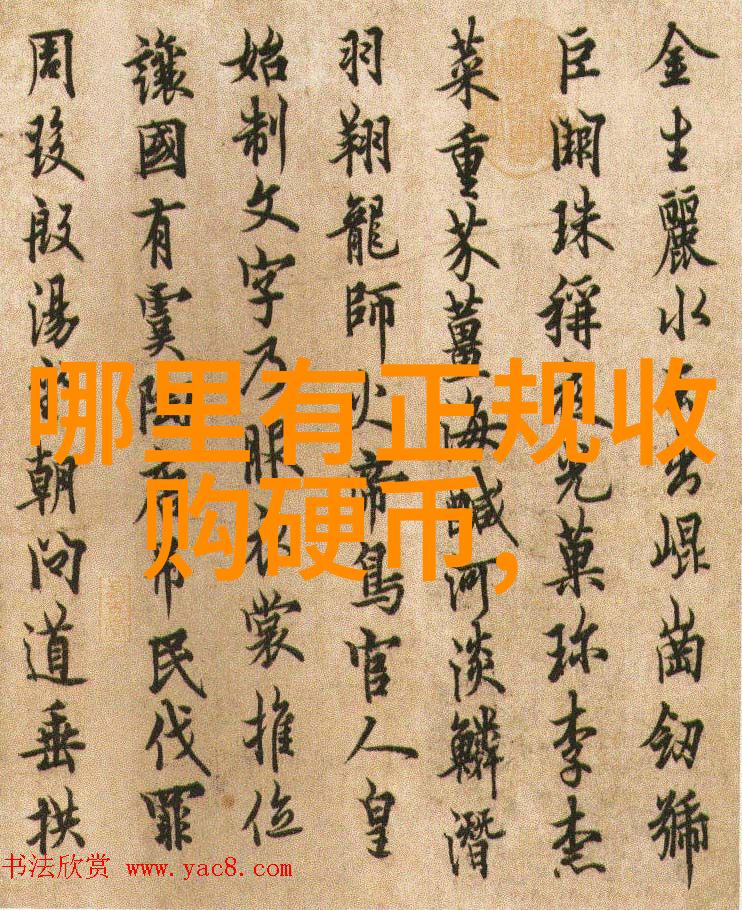 金生麗水玉出崐崗劒號
巨闕珠稱夜光菓珎李柰
菜重芥薑海醎河淡鱗潛
羽翔龍師火帝鳥官人皇
始制文字乃服衣裳推位
讓國有虞陶唐弔民伐罪
周發殷湯坐朝問道垂拱
哪里有正规收
购硬币,
书法欣赏 www.yac8.com